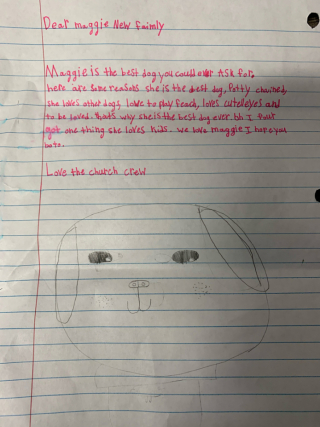 Dear maggie New faimly
Maggie is the best dog you could ever ASK for,
here are some reasons she is the best dog, Potty chained,
she loves other dogs, love to play feach, loves
to be loved. thats why she is the best dog ever. I four
got one thing she loves kids. we love maggie I hope you
Love the church crew